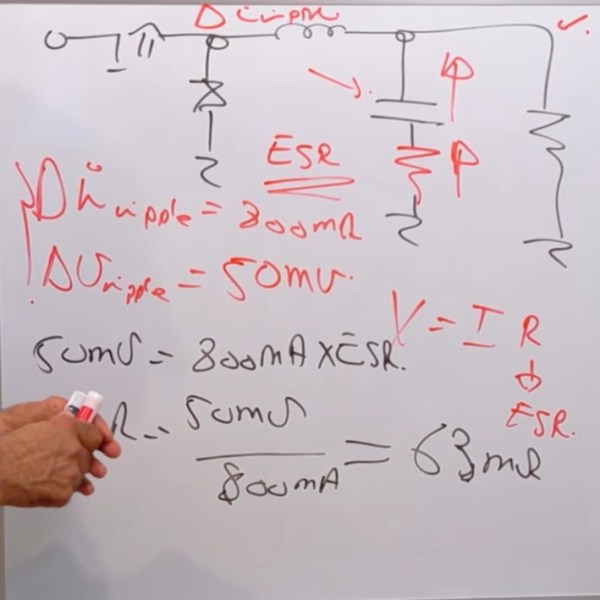 Δ i ripple
ESR
Δ i ripple = 800mA
ΔV ripple = 50mV.
V = I R
50mV = 800mA x ESR.
ESR.
R = 50mV / 800mA = 63mΩ